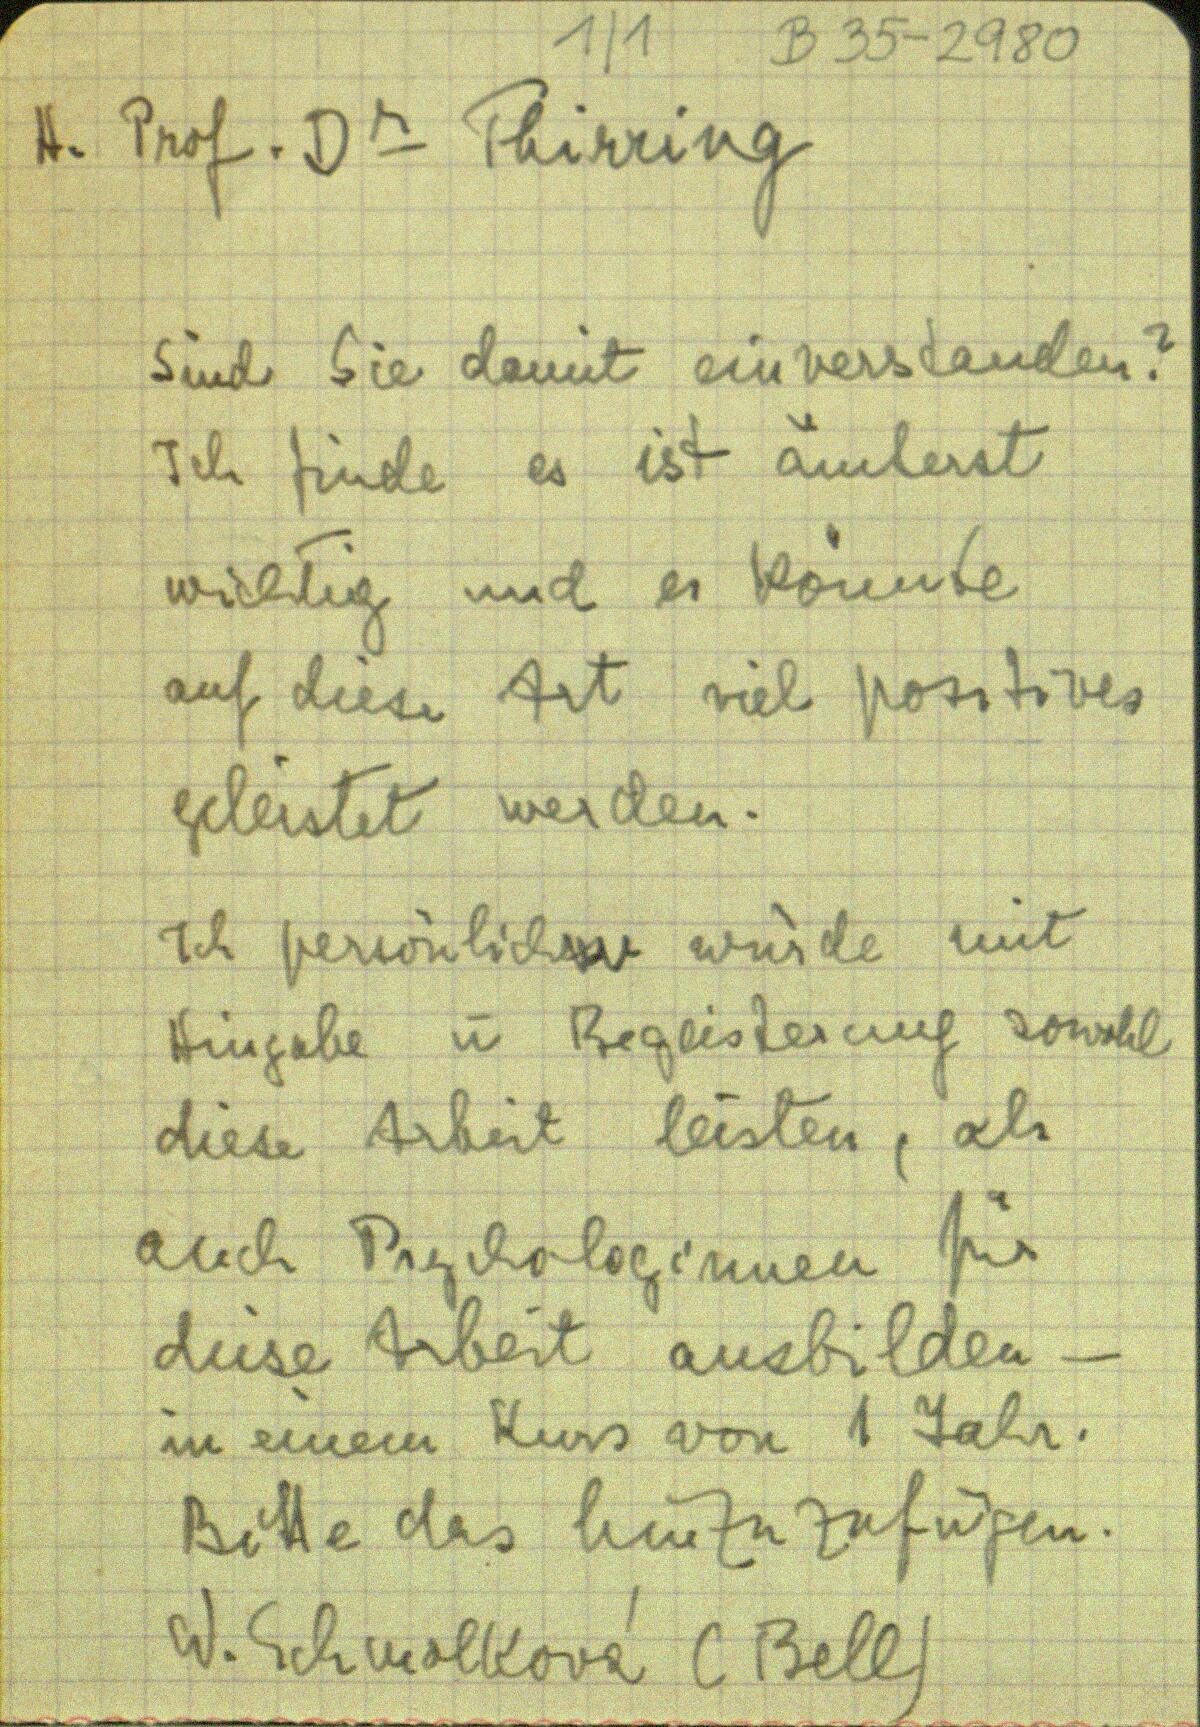 1/1 B 35-2980
H. Prof. Dr Thirring
Sind Sie damit einverstanden?
Ich finde es ist äußerst
wichtig und es könnte
auf diese Art viel positives
geleistet werden.
Ich persönlich würde mit
Hingabe u Begeisterung sowohl
diese Arbeit leisten, als
auch Psychologinnen für
diese Arbeit ausbilden –
in einem Kurs von 1 Jahr.
Bitte das hinzuzufügen.
W. Schmolková (Bell)